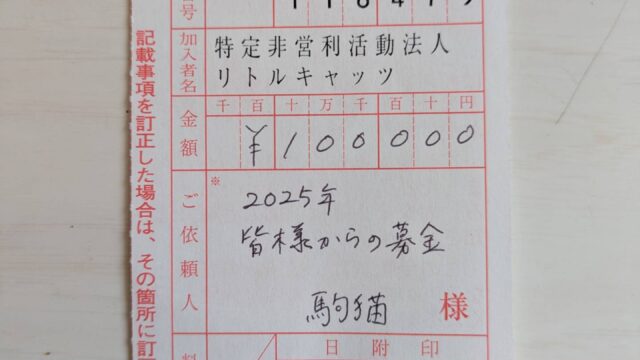 号
加入者名
特定非営利活動法人
リトルキャッツ
金額
千 百 十 万 千 百 十 円
¥100000
ご依頼人
※
2025年
皆様からの募金
駒猫 様
日附印
記載事項を訂正した場合は、その箇所に訂
料